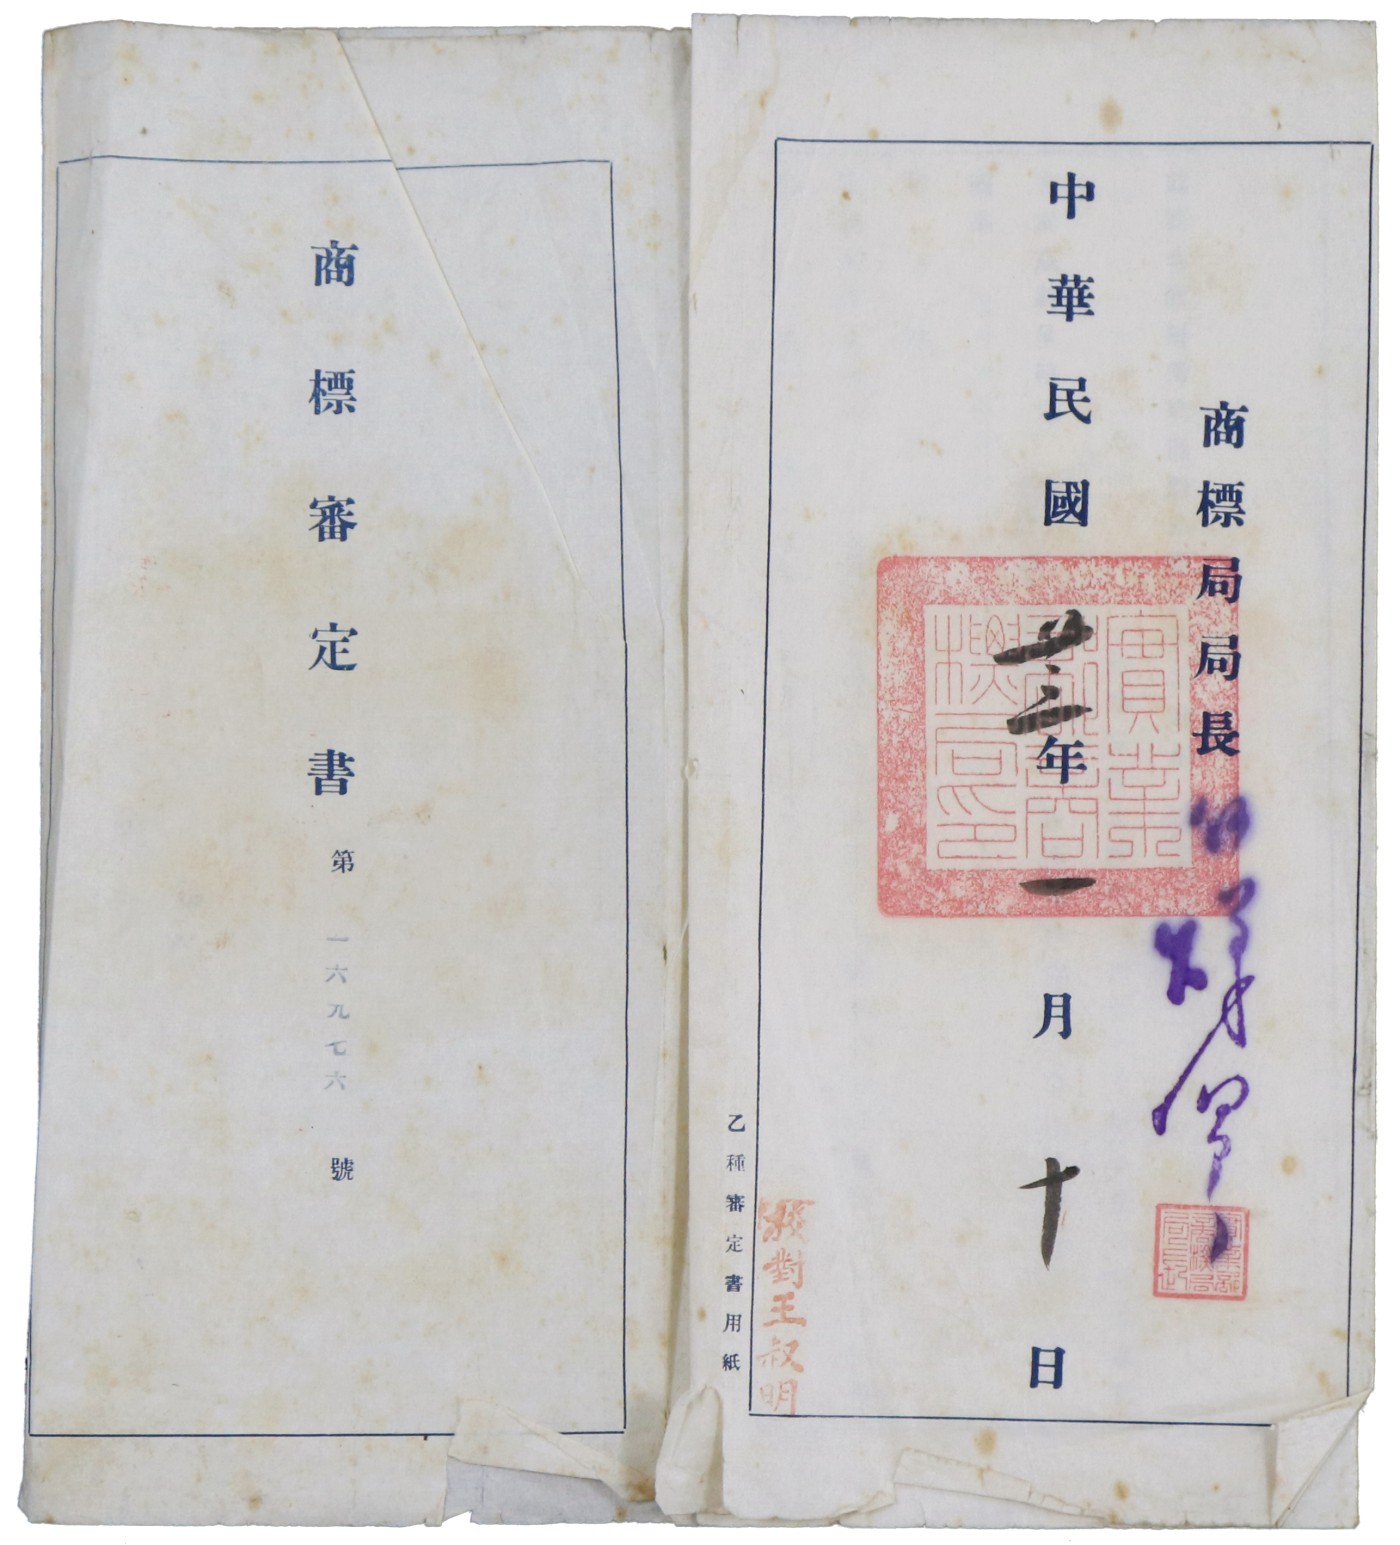 商標審定書第一六九七六號
商標局局長
中華民國廿三年一月十日
實業部商標局印
校對王叔明
乙種審定書用紙